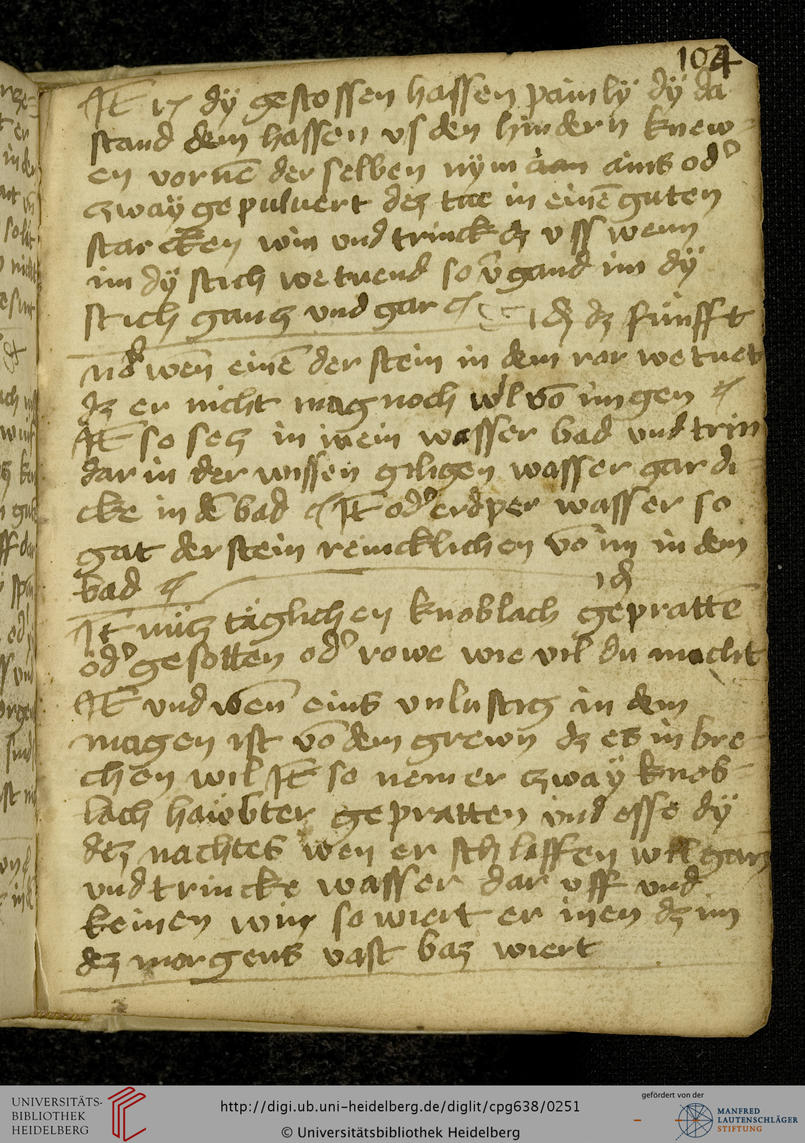 104
It dÿ gestossen hassen painlÿ dÿ da
stand dem hassen vs den hindern knew-
en vornē der selben nÿm ains od'
czwaÿ gepuluert dez tac in einē guten
starcken win vnd trinck dz vss wenn
im dÿ stich we tuend so v̄gand im dÿ
stich gancz vnd gar
dz fünfft
wen̄ einē der stein in dem ror we tuet
dz er nicht mag noch wil vō im gen
It so secz in in ein wasser bad vnd trin
dar in der wissen giligen wasser gar di-
cke in dē bad It od' erdper wasser so
gat der stein reincklichen vō im in dem
bad
It nücz täglichen knoblach gepratte̅
od' gesotten od' rowe wie vil du macht
It vnd wen̄ eins vnlustig in dem
magen ist vō dem grewn dz es in bre-
chen wil It so nem er czwaÿ knob-
lach haübter gepratten vnd esse dÿ
dez nachtes wen er schlaffen wil gan
vnd trincke wasser dar vff vnd
keinen win so wiert er inen dz im
dez morgens vast baz wiert
UNIVERSITÄTS-
BIBLIOTHEK
HEIDELBERG
http://digi.ub.uni-heidelberg.de/diglit/cpg638/0251
© Universitätsbibliothek Heidelberg
gefördert von der
MANFRED
LAUTENSCHLÄGER
STIFTUNG